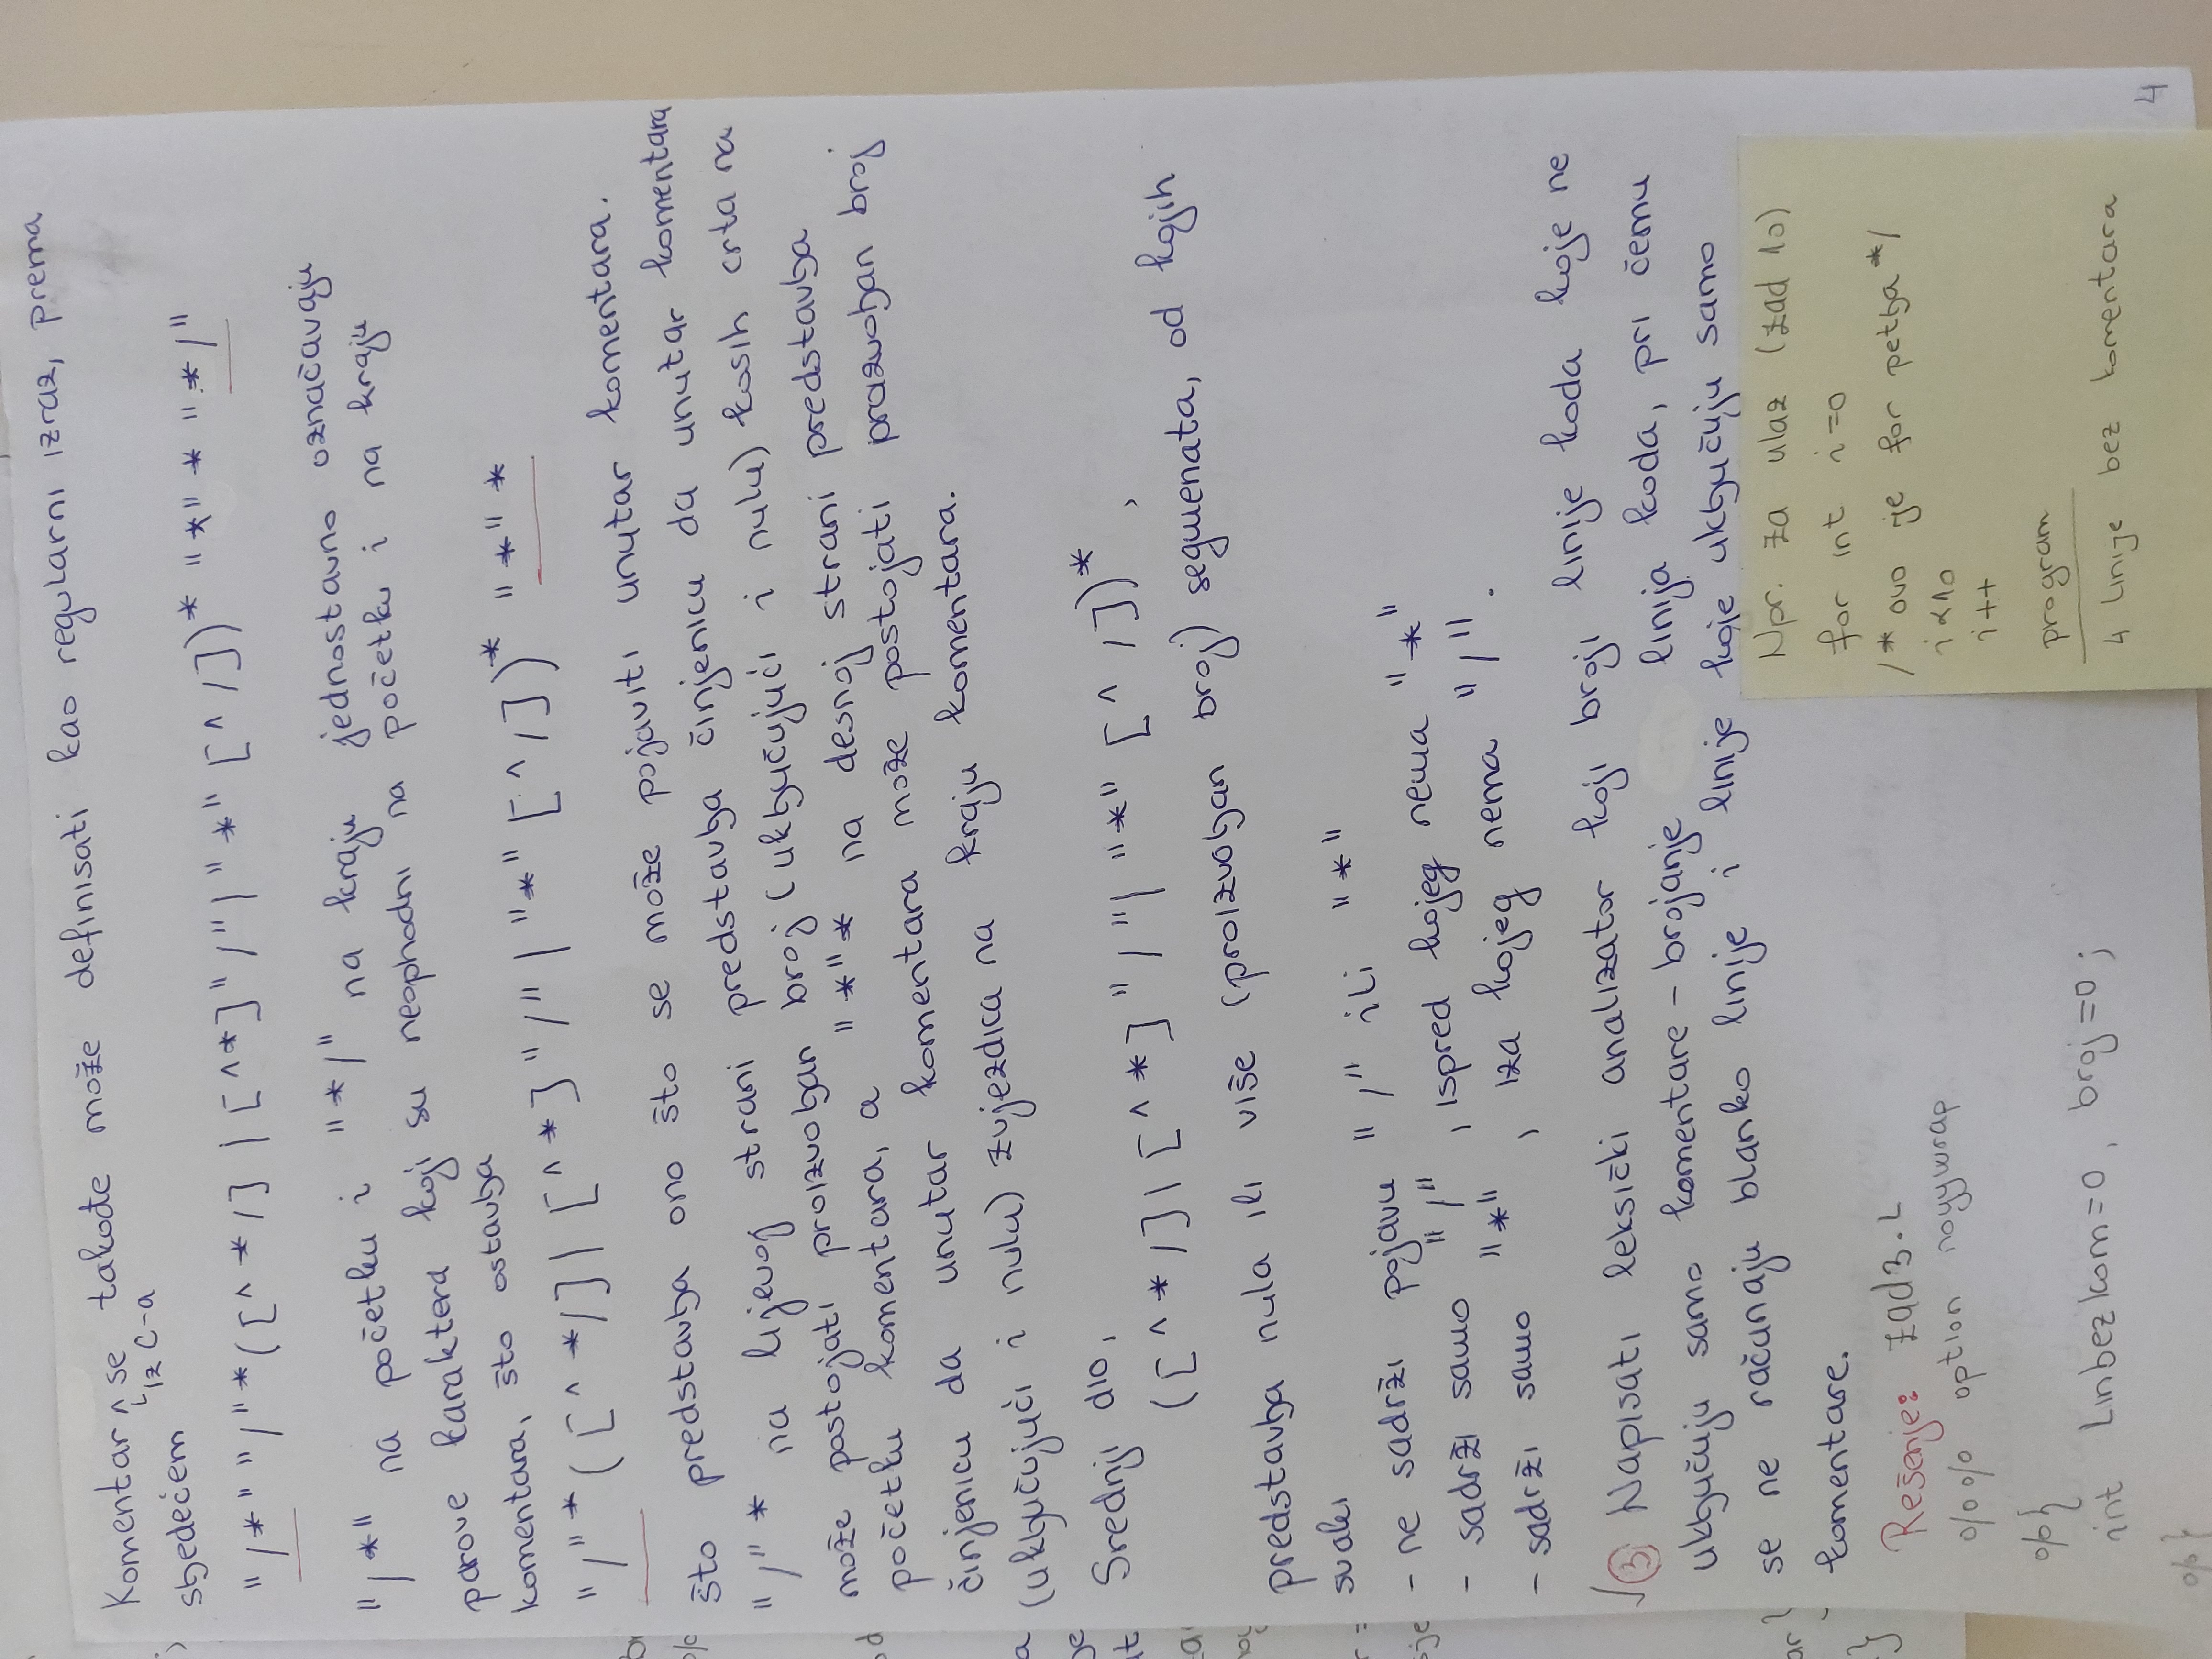 Komentar ^ se takođe može definisati kao regularni izraz, prema
iz C-a
sljedećem
"/*" "/"*([^*/]|[^*]"/"|"*"[^/])* "*"* "*/"
"/*" na početku i "*/" na kraju jednostavno označavaju
parove karaktera koji su neophodni na početku i na kraju
komentara, što ostavlja
"/"*([^*/]|[^*]"/"|"*"[^/])* "*"*
što predstavlja ono što se može pojaviti unutar komentara.
"/"* na lijevoj strani predstavlja činjenicu da unutar komentara
može postojati proizvoljan broj (uključujući i nulu) kosih crta na
početku komentara, a "*"* na desnoj strani predstavlja
činjenicu da unutar komentara može postojati proizvoljan broj
(uključujući i nulu) zvjezdica na kraju komentara.
Srednji dio,
([^*/]|[^*]"/"|"*"[^/])*,
predstavlja nula ili više (proizvoljan broj) segmenata, od kojih
svaki
- ne sadrži pojavu "/" ili "*"
- sadrži samo "/", ispred kojeg nema "*"
- sadrži samo "*", iza kojeg nema "/".
√ 3 Napisati leksički analizator koji broji linije koda koje ne
uključuju samo komentare - brojanje linija koda, pri čemu
se ne računaju blanko linije i linije koje uključuju samo
komentare.
Rešenje: zad3.L
%% option noyywrap
%{
int Linbezkom=0, broj=0;
%}
Npr. za ulaz (zad 10)
for int i=0
/* ovo je for petlja */
i<10
i++
program
4 linije bez komentara
4